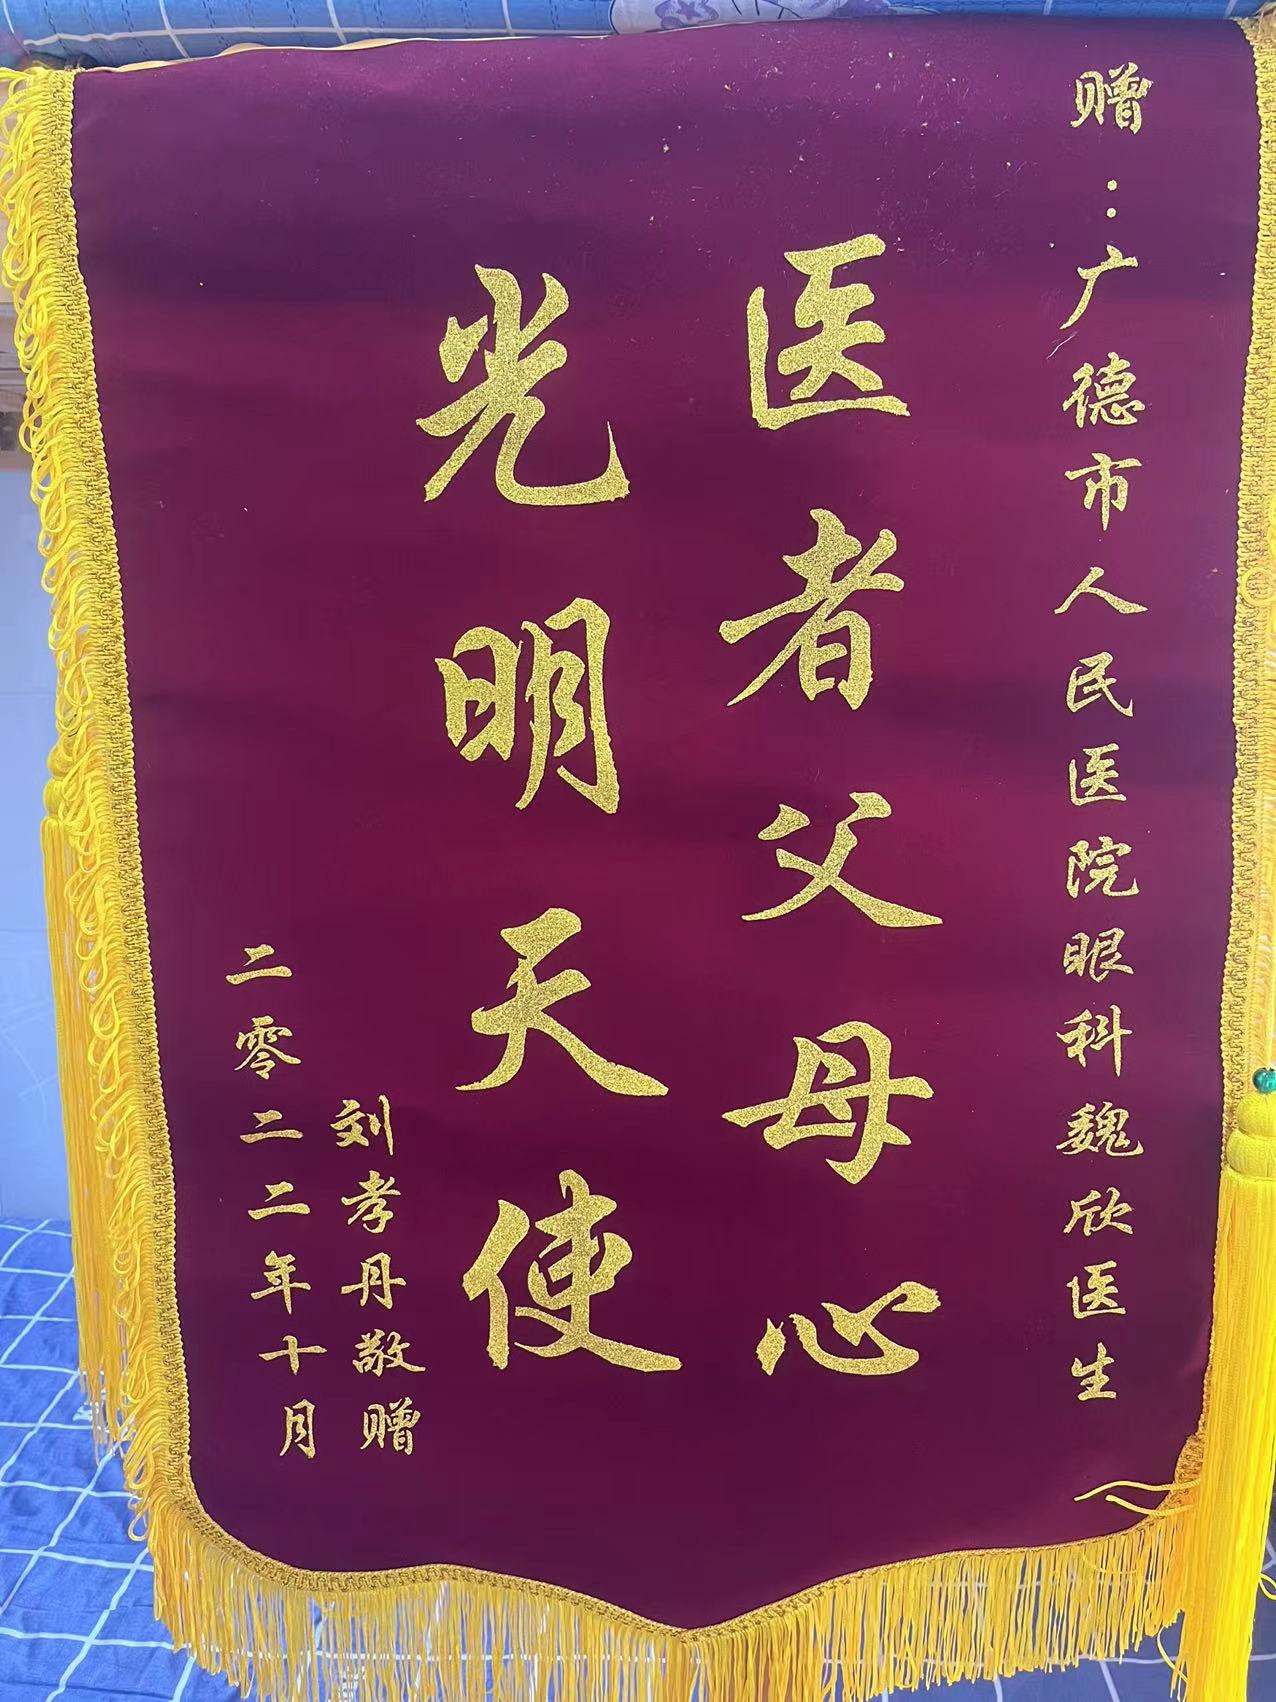 赠：广德市人民医院眼科魏欣医生
医者父母心
光明天使
刘孝丹敬赠
二零二二年十月